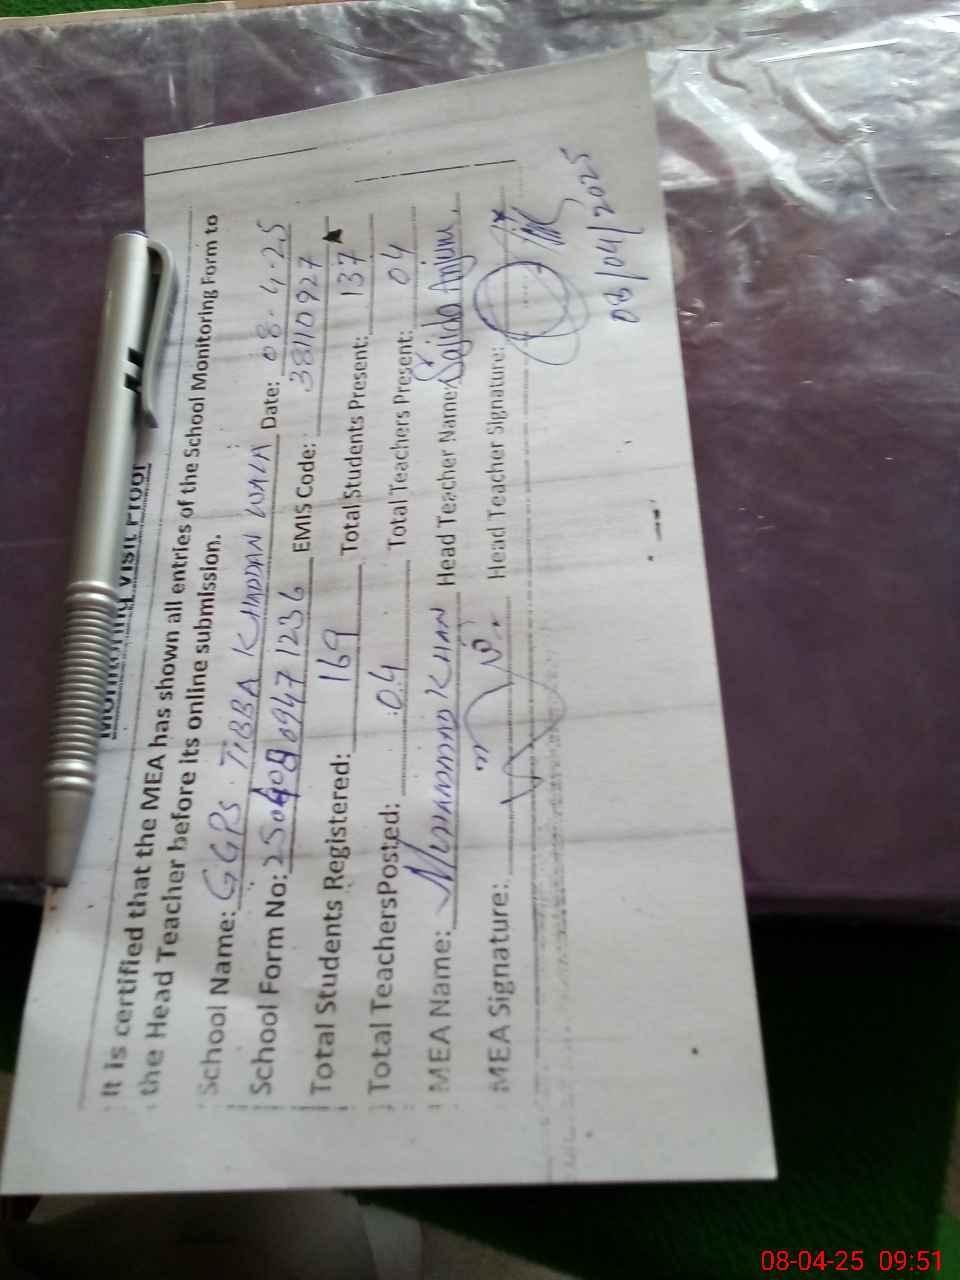 Monitoring Visit Proof
It is certified that the MEA has shown all entries of the School Monitoring Form to
the Head Teacher before its online submission.
School Name: GGPS TIBBA KHADDAN WALA Date: 08-4-25
School Form No: EMIS Code: 38110927
Total Students Registered: 169 Total Students Present: 137
Total TeachersPosted: 04 Total Teachers Present: 04
MEA Name: MUHAMMAD KHAN Head Teacher Name: Sajida Anjum
MEA Signature: Head Teacher Signature:
08/04/2025
08-04-25 09:51